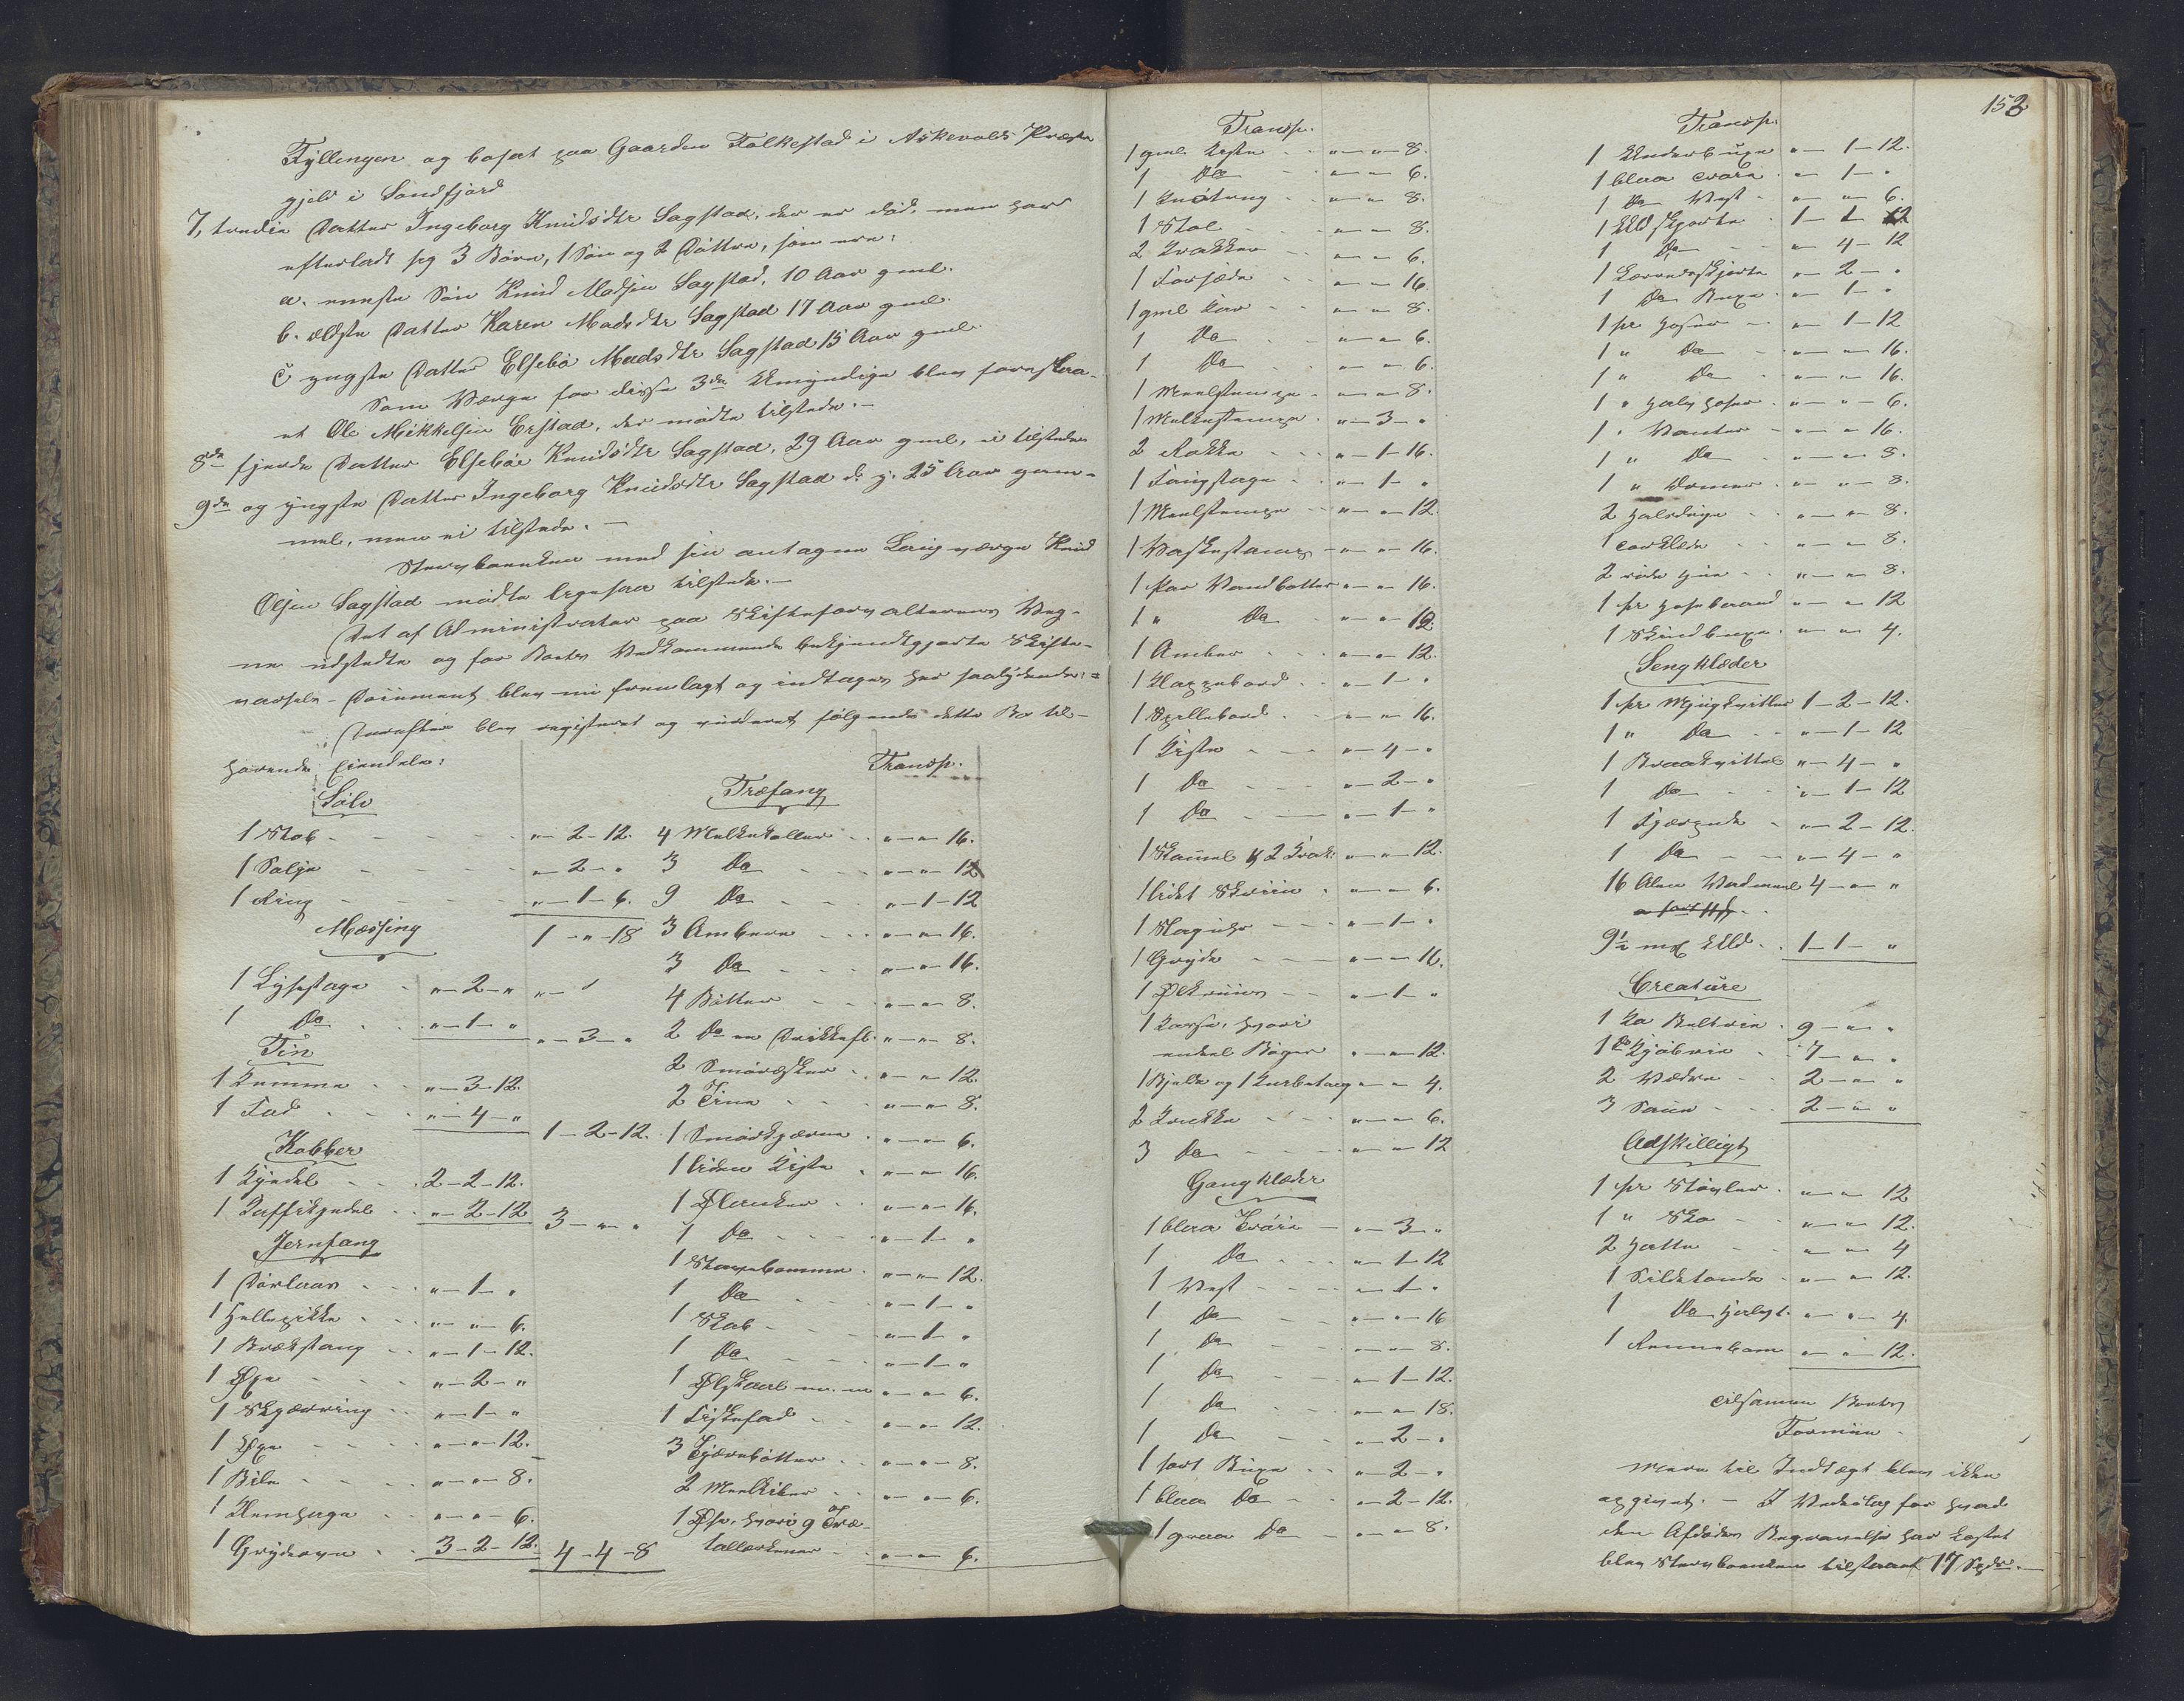 Fyllingen og bosat paa Gaarden Folkestad i Askevolds Præste
gjeld i Søndfjord
7, tredie Datter Ingeborg Knudsdtr Sagstad, der er død, men har
efterladt sig 3 Børn, 1 Søn og 2 Døttre, som ere:
a. eneste Søn Knud Madsen Sagstad, 10 Aar gml.
b. ældste Datter Karen Madsdtr Sagstad 17 Aar gml.
c yngste Datter Elsebø Madsdtr Sagstad 15 Aar gml.
Som Værge for disse 3de Umyndige blev foreslaa-
et Ole Mikkelsen Erstad, der mødte tilstede. —
8de fjerde Datter Elsebøe Knudsdtr Sagstad, 29 Aar gml, ei tilstede
9de og yngste Datter Ingeborg Knudsdtr Sagstad d: y. 25 Aar gam-
mel, men ei tilstede. —
Stervboenken med sin antagne Laugværge Knud
Olsen Sagstad mødte ligesaa tilstede. —
Det af Administrator paa Skifteforvalterens Veg-
ne udstedte og for Boets Vedkommende bekjendtgjorte Skifte-
varsels-Document blev nu fremlagt og indtages her saalydende: =
Derefter blev registeret og vurderet følgende dette Bo til-
hørende Eiendele:
Sølv
1 Stob - - " - 2 - 12.
1 Sølje - - " - 2 - "
1 Ring - - " - 1 - 6.
1 - " - 18
Messing
1 Lysestage - " - 2 - "
1 Do - " - 1 - "
" - 3 - "
Tin
1 Kumme - " - 3 - 12.
1 Fad - - " - 4 - "
1 - 2 - 12.
Kobber
1 Kjedel - - 2 - 2 - 12.
1 Kaffekjedel - " - 2 - 12
3 - " - "
Jernfang
1 Dørlaas - " - 1 - "
1 Hellepikke - " - " - 6.
1 Brækstang - " - 1 - 12.
1 Øxe - " - 2 - "
1 Skjærring - " - 1 - "
1 Øxe - " - " - 12.
1 Bile - " - " - 8.
1 - " - " - 6.
1 Grydeovn - 3 - 2 - 12.
4 - 4 - 8
Transp.
Træfang
4 Melkekoller - " - " - 16.
3 Do - " - " - 12
9 Do - " - 1 - 12
3 Ambere - " - " - 16.
3 Do - " - " - 16.
4 Bøtter - " - " - 8.
2 Do en Drikkefl. " - " - 8.
2 Smøræsker - " - " - 12.
2 True - " - " - 8.
1 Smørkjærne - " - " - 6.
1 liden Kiste - " - " - 16.
1 Ølanker - " - " - 16.
1 Do - " - 1 - "
1 - " - " - 12.
1 Do - " - 1 - "
1 Skab - " - 1 - "
1 Do - " - 1 - "
1 Ølskaal " - " - 6.
1 Fiskefad - " - " - 12.
3 Tjærebøtter - " - " - 8.
2 - " - " - 6.
1 Øse, hvori 9 Træ-
tallerkener - " - " - 6.
Transp.
1 gml Kiste - " - " - 8.
1 Do - " - " - 6.
1 - " - " - 8.
1 Stol - " - " - 8.
2 Krakker - " - " - 6.
1 - " - " - 16.
1 gml Kar - " - " - 8.
1 Do - " - " - 6.
1 Do - " - " - 6.
1 Meelstampe - " - " - 8.
1 Melkestampe - " - 3 - "
2 Rokke - " - 1 - 16.
1 - " - 1 - "
1 Meelstampe - " - " - 12.
1 Vaskestamp - " - " - 16.
1 Par Vandbøtter " - " - 16.
1 " Do - " - " - 12
1 Amber - " - " - 12.
1 Klappebord - " - 1 - "
1 Spillebord - " - " - 16.
1 Kiste - " - 4 - "
1 Do - " - 2 - "
1 Do - " - 1 - "
1 Skammel & 2 Krak: " - " - 12.
1 lidet Skriin - " - " - 6.
1 Slaguhr - " - 1 - "
1 Gryde - " - " - 16.
1 - " - 1 - "
1 Kasse, hvori
endeel Bøger - " - " - 12.
1 og 1 " - " - 4.
2 Krukke - " - " - 6.
3 Do - " - " - 12
Gangklæder
1 blaa Trøie - " - 3 - "
1 Do - " - 1 - 12
1 Vest - " - 1 - "
1 Do - " - " - 16
1 Do - " - " - 8.
1 Do - " - 1 - 12.
1 Do - " - " - 18.
1 Do - " - 2 - "
1 sort Buxe - " - 2 - "
1 blaa Do - " - 2 - 12.
1 graa Do - " - " - 8.
153
Transp.
1 Underbuxe " - 1 - 12.
1 blaa Trøie - " - 1 - "
1 Do Vest - " - " - 6.
1 Uldskjorte - 1 - 1 - 12
1 Do - " - 4 - 12
1 Lærredsskjorte " - 2 - "
1 Do Buxe - " - 1 - "
1 pr Hoser - " - 1 - 12
1 " Do - " - " - 16.
1 " Do - " - " - 16.
1 " Halvhoser - " - " - 6.
1 " Vanter - " - " - 16.
1 " Do - " - " - 8.
1 " - " - " - 8.
2 Halsduge - " - " - 8.
1 Tørklæde - " - " - 8.
2 - " - " - 8.
1 pr Hosebaand " - " - 12
1 Skindbuxe - " - " - 4.
Sengklæder
1 pr 1 - 2 - 12.
1 " Do - " - 1 - 12
1 " - 4 - "
1 Do - " - 1 - 12
1 - " - 2 - 12.
1 Do - " - 4 - "
16 Alen Vadmel 4 - " - "
9½ mk Uld - 1 - 1 - "
Creature
1 Ko - 9 - " - "
1 do - 7 - " - "
2 Vædre - 2 - " - "
3 Sauer - 2 - " - "
Adskilligt
1 pr Støvler - " - " - 12
1 " Sko - " - " - 12.
2 Hatte - " - " - 4
1 Sildetønde - " - " - 12.
1 Do halv " - " - 4.
1 " - " - 12.
Tilsammen Boets
Formue -
Mere til Indtægt blev ikke
opgivet. - I Vederlag for hvad
den Afdødes Begravelse har kostet
blev Stervboenken tilstaaet 17 Spdr. —